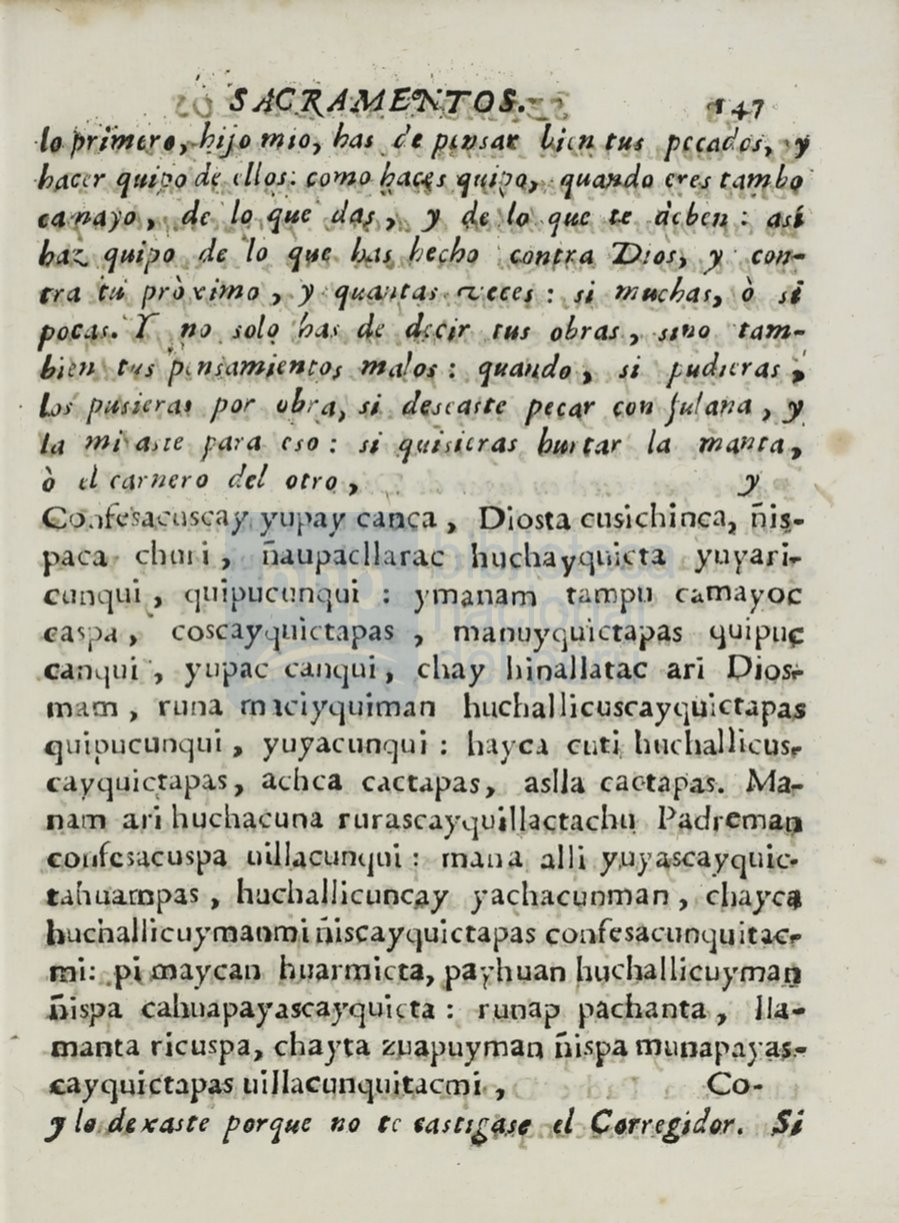 SACRAMENTOS. 147
lo primero, hijo mio, has de pensar bien tus pecados, y
hacer quipo de ellos: como haces quipo, quando eres tambo
camayo, de lo que das, y de lo que te deben: así
haz quipo de lo que has hecho contra Dios, y con-
tra tu pròximo, y quantas veces: si muchas, ò si
pocas. Y no solo has de decir tus obras, sino tam-
bien tus pensamientos malos: quando, si pudieras,
los pusieras por obra, si deseaste pecar con fulana, y
la miraste para eso: si quisieras hurtar la manta,
ò el carnero del otro, y
Confesacuscay yupay canca, Diosta cusichinca, ñis-
paca churi, ñaupacllarac huchayquicta yuyari-
cunqui, quipucunqui: ymanam tampu camayoc
caspa, coscayquictapas, manuyquictapas quipuc
canqui, yupac canqui, chay hinallatac ari Dios-
mam, runa maciyquiman huchallicuscayquictapas
quipucunqui, yuyacunqui: hayca cuti huchallicus-
cayquictapas, achca cactapas, aslla cactapas. Ma-
nam ari huchacuna rurascayquillactachu Padreman
confesacuspa uillacunqui: mana alli yuyascayquic-
tahuampas, huchallicuncay yachacunman, chayca
huchallicuymanmi ñiscayquictapas confesacunquitac-
mi: pi maycan huarmicta, payhuan huchallicuyman
ñispa cahuapayascayquicta: runap pachanta, lla-
manta ricuspa, chayta zuapuyman ñispa munapayas-
cayquictapas uillacunquitacmi, Co-
y lo dexaste porque no te castigase el Corregidor. Si